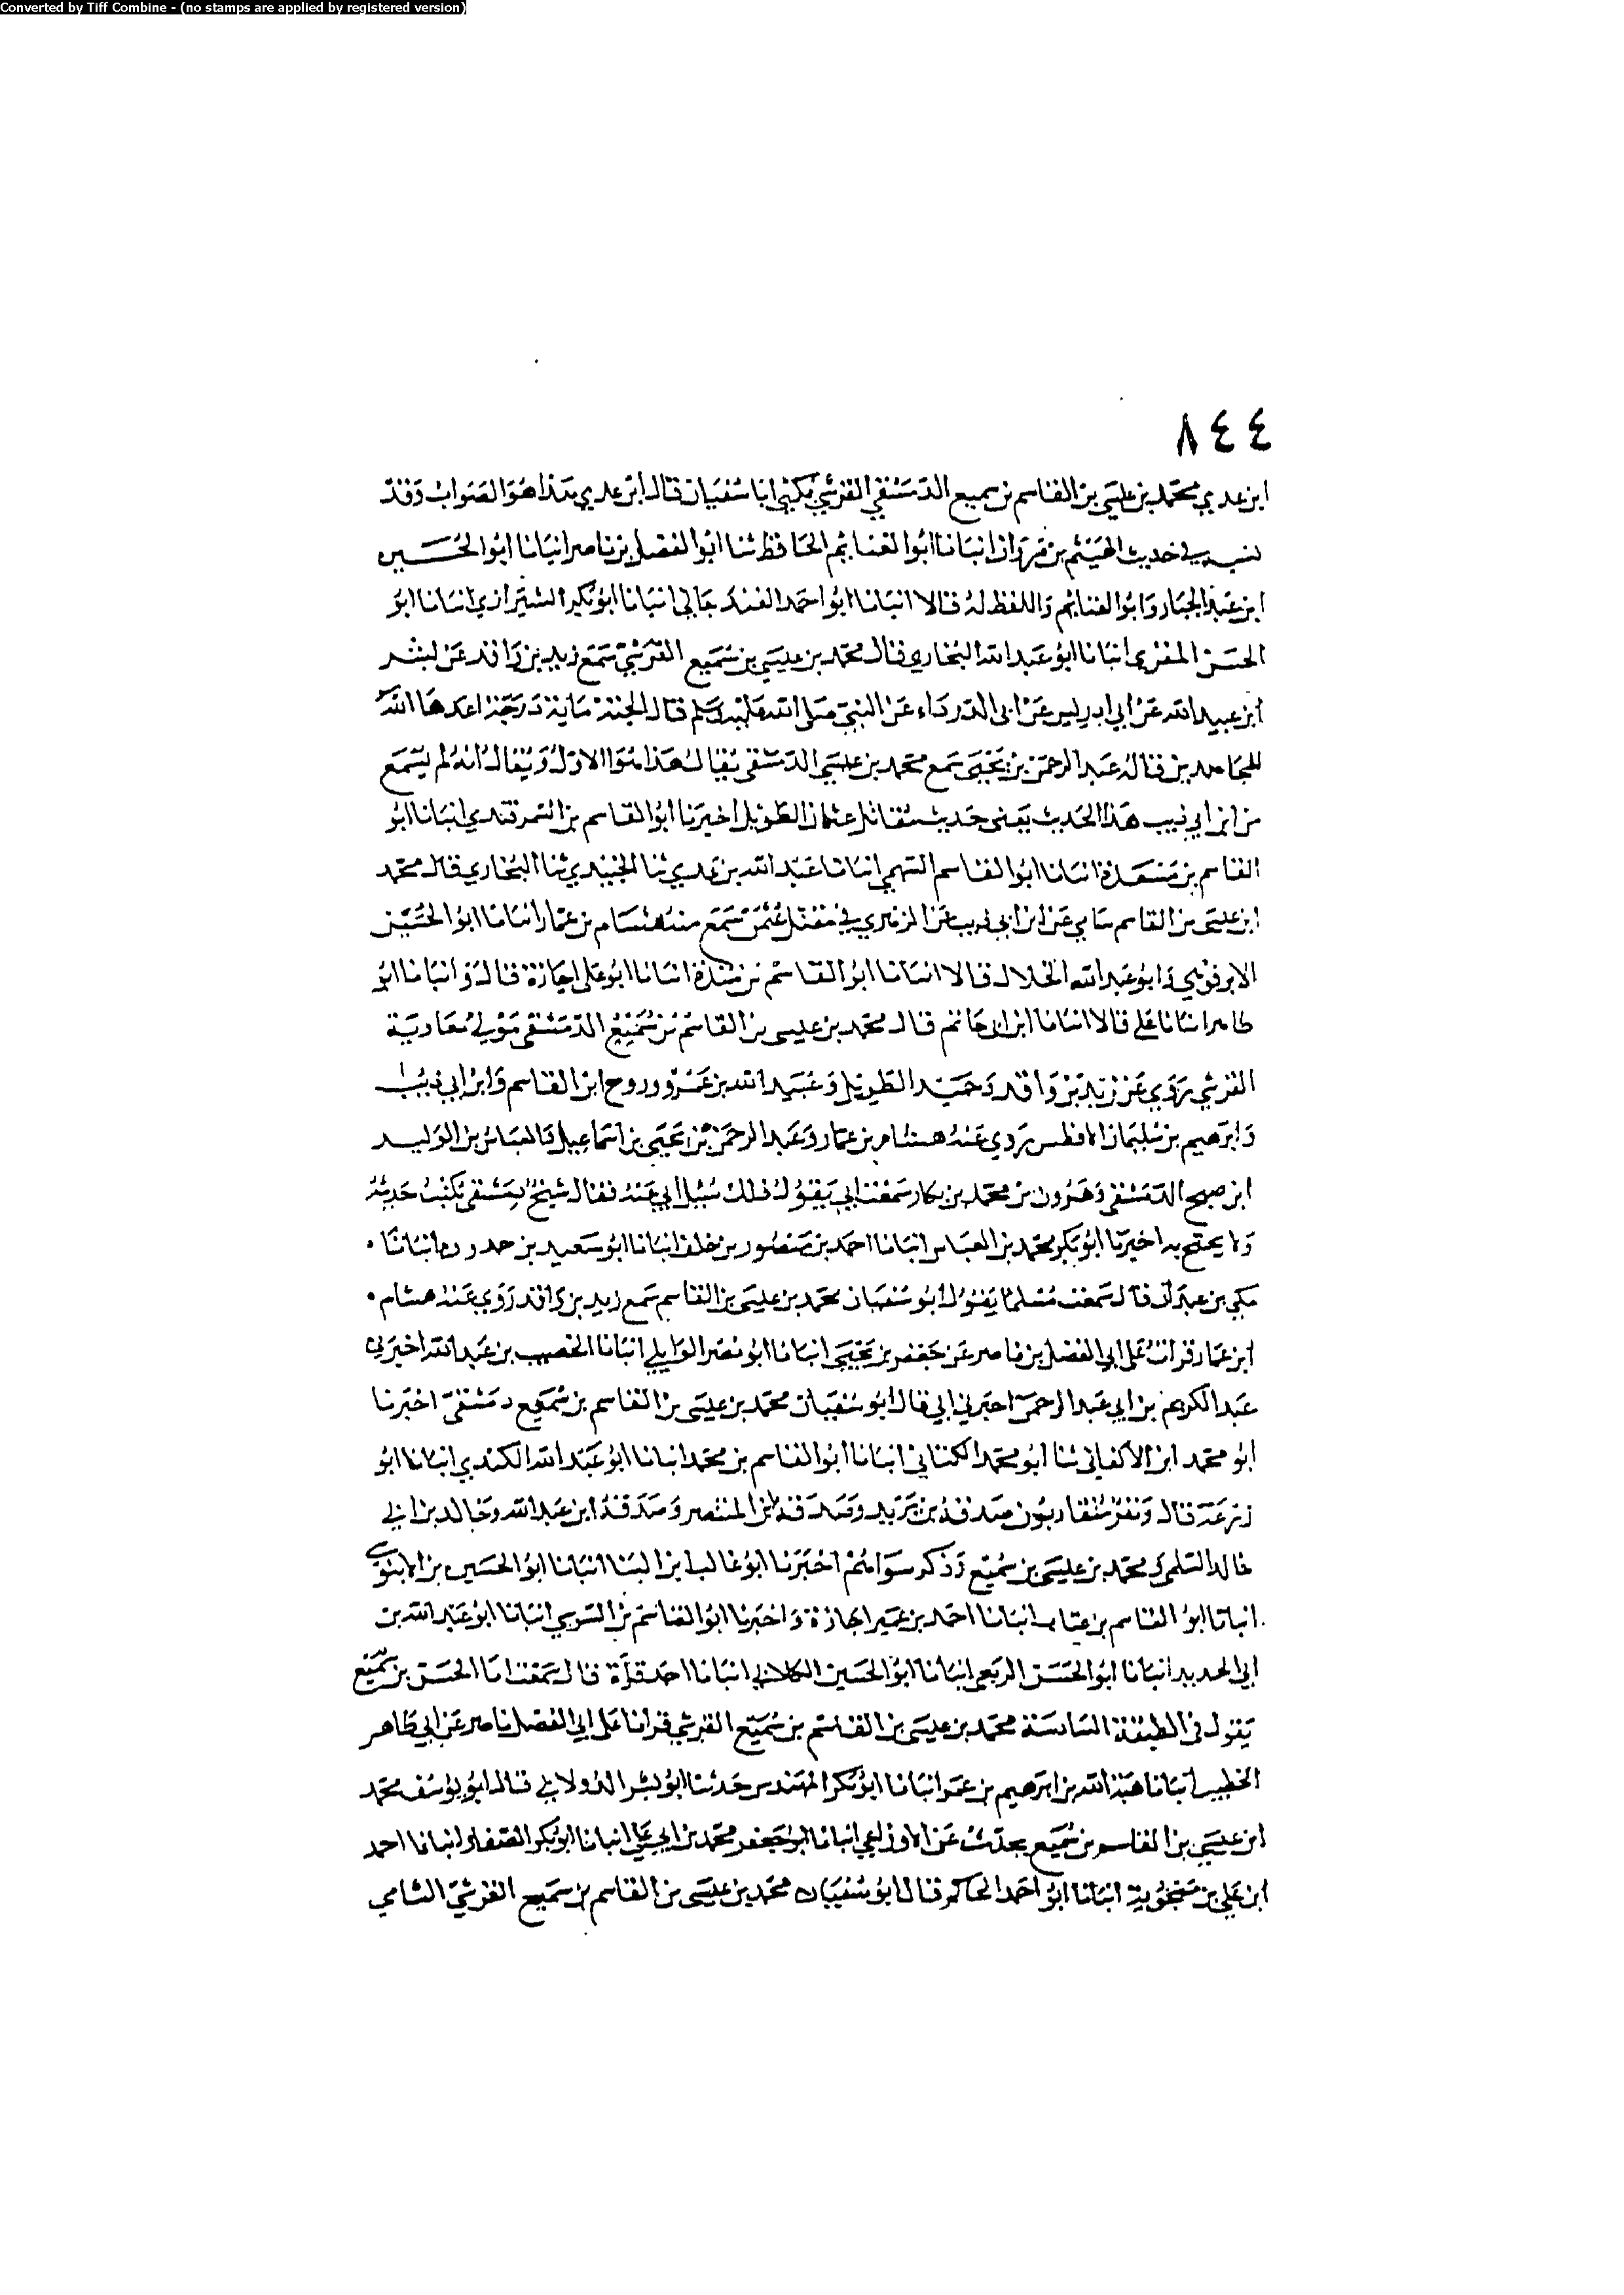 Converted by Tiff Combine - (no stamps are applied by registered version)
٨٤٤
ابن عدي محمد بن عيسى بن القاسم بن سميع الدمشقي القرشي يكنى ابا سفيان قال ابن عدي هذا هو الصواب وقد
في حديث الهيثم بن مروان انبانا ابو الغنايم الحافظ ثنا ابو الفضل بن ناصر انبانا ابو الحسين
ابن عبد الجبار وابو الغنايم واللفظ له قالا انبانا ابو احمد الغندجاني انبانا ابو بكر الشيرازي انبانا ابو
الحسن المقري انبانا ابو عبد الله البخاري قال محمد بن عيسى بن سميع القرشي سمع زيد بن واقد عن بشر
ابن عبيد الله عن ابي ادريس عن ابي الدرداء عن النبي صلى الله عليه وسلم قال الجنة ماية درجة اعدها الله
للمجاهدين قاله عبد الرحمن بن يحيى سمع محمد بن عيسى الدمشقي يقال هذا هو الاول ويقال انه لم يسمع
من ابن ابي ذيب هذا الحديث يعني حديث مقاتل عثمان الطويل اخبرنا ابو القاسم بن السمرقندي انبانا ابو
القاسم بن مسعدة انبانا ابو القاسم السهمي انبانا عبد الله بن عدي ثنا الجنيدي ثنا البخاري قال محمد
ابن عيسى بن القاسم شامي عن ابن ابي ذيب عن الزهري في مقتل عثمن سمع منه هشام بن عمار انبانا ابو الحسين
الابرقوهي وابو عبد الله الخلال قالا انبانا ابو القاسم بن مندة انبانا ابو علي اجازة قال وانبانا ابو
طاهر انبانا علي قالا انبانا ابن ابي حاتم قال محمد بن عيسى بن القاسم بن سميع الدمشقي مولى معاوية
القرشي يروي عن زيد بن واقد وحميد الطويل وعبيد الله بن عمرو وروح ابن القاسم وابن ابي ذيب
وابرهيم بن سليمان الافطس يروي عنه هشام بن عمار وعبد الرحمن بن يحيى بن اسماعيل والعباس بن الوليد
ابن صبح الدمشقي وهرون بن محمد بن بكار سمعت ابي يقول ذلك سئل ابي عنه فقال شيخ دمشقي يكتب حديثه
ولا يحتج به اخبرنا ابو بكر محمد بن العباس انبانا احمد بن منصور بن خلف انبانا ابو سعيد بن حمدون انبانا
مكي بن عبدان قال سمعت مسلما يقول ابو سفيان محمد بن عيسى بن القاسم سمع زيد بن واقد روى عنه هشام
ابن عمار قرات على ابي الفضل بن ناصر عن جعفر بن يحيى انبانا ابو نصر الوايلي انبانا الخصيب بن عبد الله اخبرني
عبد الكريم بن ابي عبد الرحمن اخبرني ابي قال ابو سفيان محمد بن عيسى بن القاسم بن سميع دمشقي اخبرنا
ابو محمد ابن الاكفاني ثنا ابو محمد الكتاني انبانا ابو القاسم بن محمد انبانا ابو عبد الله الكندي انبانا ابو
زرعة قال ونفر متقاربون صدقة بن يزيد وصدقة بن المنتصر وصدقة ابن عبد الله وخالد بن ابي
خالد السلمي ومحمد بن عيسى بن سميع وذكر سواهم اخبرنا ابو غالب بن البنا انبانا ابو الحسين بن الابنوسي
انبانا ابو القاسم بن عتاب انبانا احمد بن عمير اجازة واخبرنا ابو القاسم بن السوسي انبانا ابو عبد الله بن
ابي الحديد انبانا ابو الحسن الربعي انبانا ابو الحسين الكلابي انبانا احمد قراة قال سمعت ابا الحسن بن سميع
يقول في الطبقة السادسة محمد بن عيسى بن القاسم بن سميع القرشي قرانا على ابي الفضل بن ناصر عن ابي طاهر
الخطيب انبانا هبة الله بن ابرهيم بن عمر انبانا ابو بكر المهندس حدثنا ابو بشر الدولابي قال ابو يوسف محمد
ابن عيسى بن القاسم بن سميع يحدث عن الاوزاعي انبانا ابو جعفر محمد بن ابي علي انبانا ابو بكر الصفار انبانا احمد
ابن علي بن منجويه انبانا ابو احمد الحاكم قال ابو سفيان محمد بن عيسى بن القاسم بن سميع القرشي الشامي